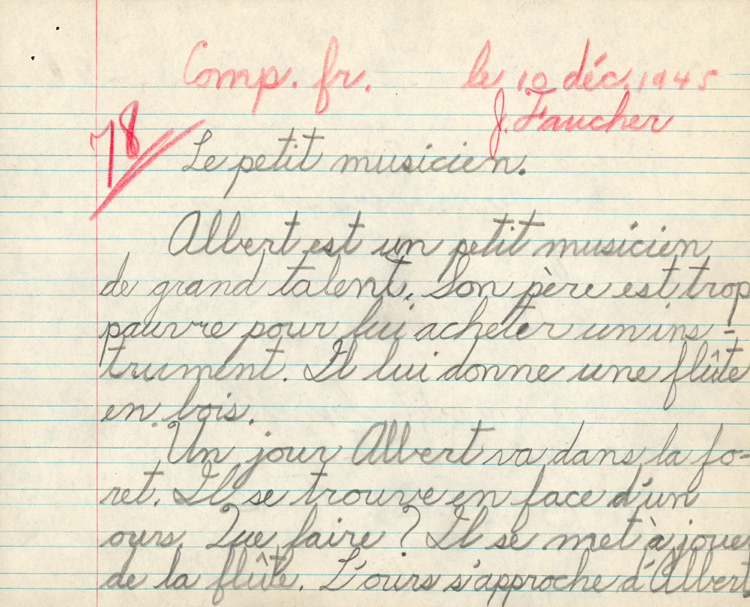 Comp. fr. le 10 déc. 1945
J. Faucher
78
Le petit musicien.
Albert est un petit musicien
de grand talent. Son père est trop
pauvre pour lui acheter un ins-
trument. Il lui donne une flûte
en bois.
Un jour Albert va dans la fo-
ret. Il se trouve en face d'un
ours. Que faire ? Il se met à joue
de la flûte. L'ours s'approche d'Albert